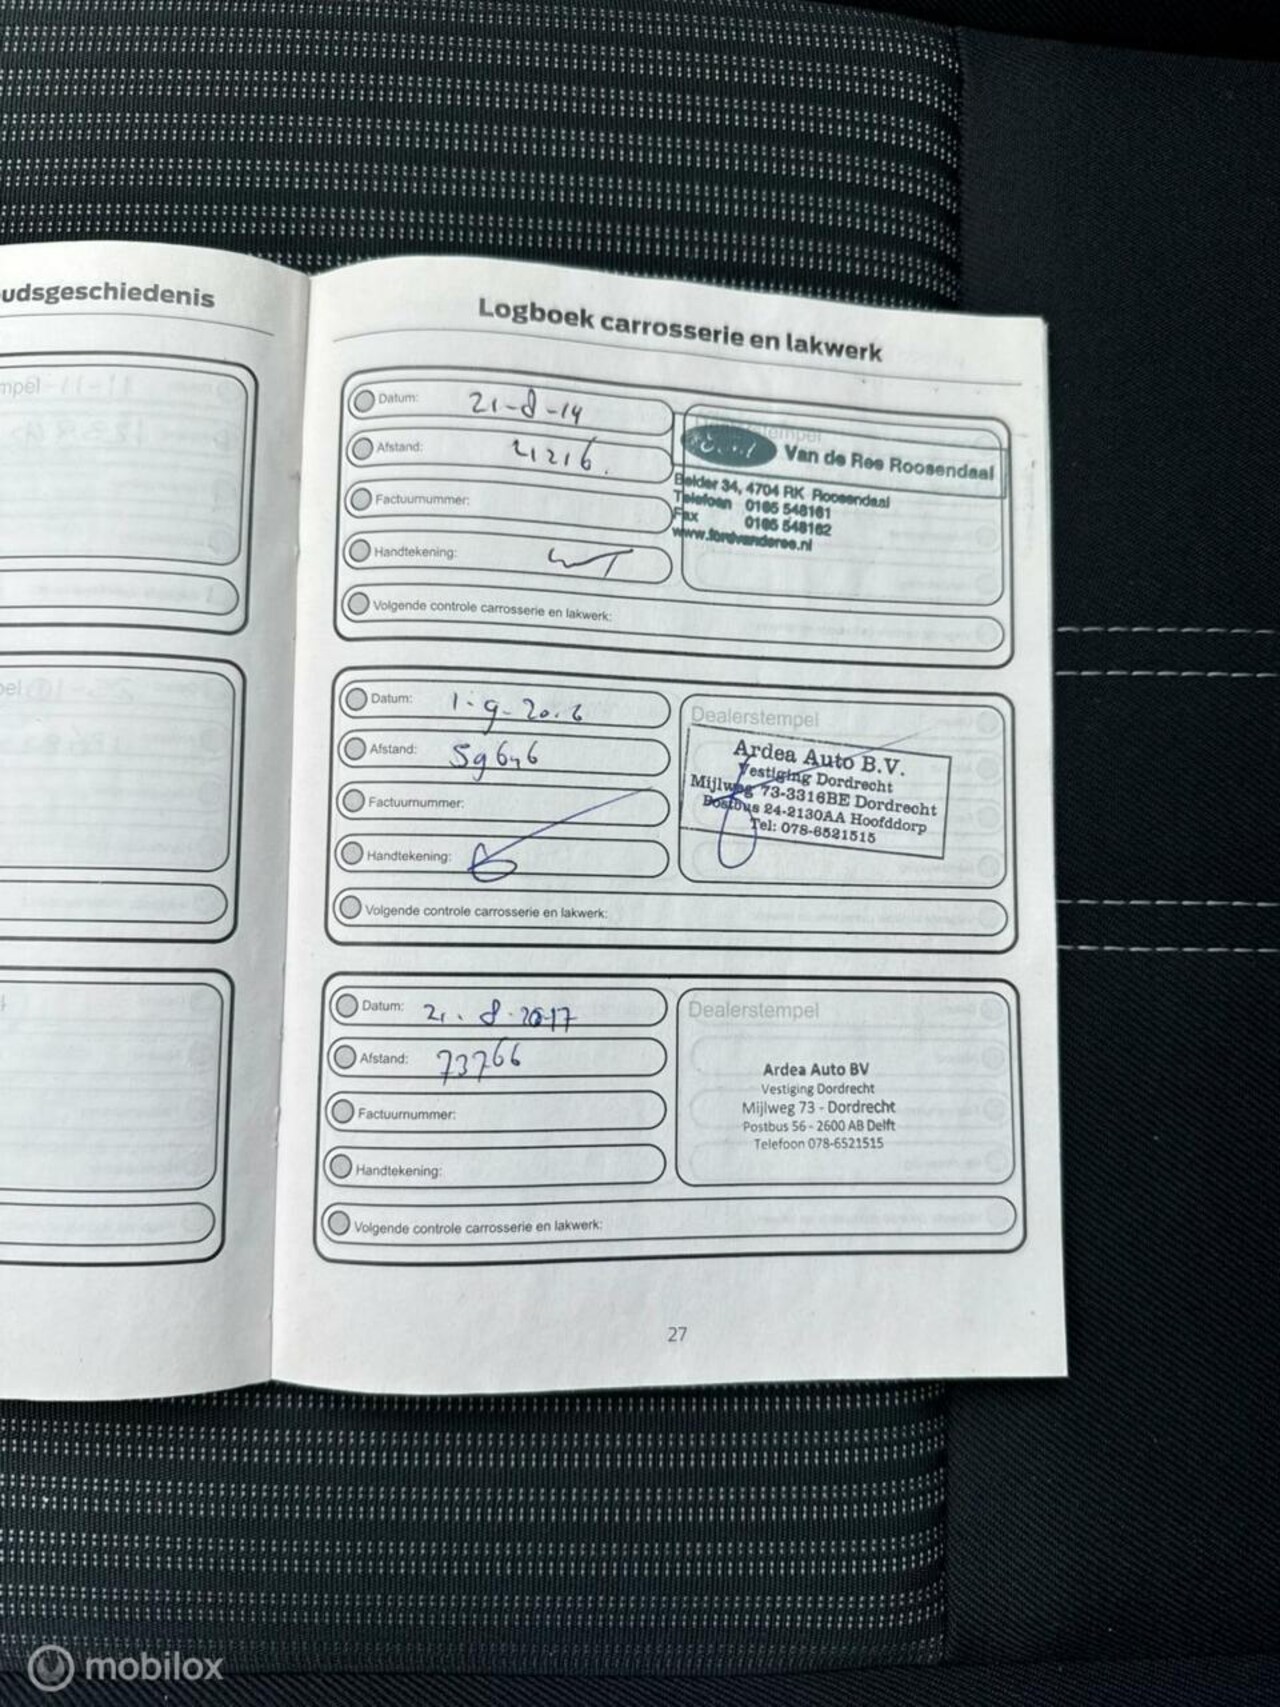 udsgeschiedenis
mpel
pel
Logboek carrosserie en lakwerk
Datum: 21-8-14
Afstand: 21216.
Factuurnummer:
Handtekening:
Volgende controle carrosserie en lakwerk:
Van de Ree Roosendaal
Belder 34, 4704 RK Roosendaal
Telefoon 0165 548161
Fax 0165 548162
www.fordvanderee.nl
Datum: 1-9-2016
Afstand: 59646
Factuurnummer:
Handtekening:
Volgende controle carrosserie en lakwerk:
Dealerstempel
Ardea Auto B.V.
Vestiging Dordrecht
Mijlweg 73-3316BE Dordrecht
Postbus 24-2130AA Hoofddorp
Tel: 078-6521515
Datum: 21.8.2017
Afstand: 73766
Factuurnummer:
Handtekening:
Volgende controle carrosserie en lakwerk:
Dealerstempel
Ardea Auto BV
Vestiging Dordrecht
Mijlweg 73 - Dordrecht
Postbus 56 - 2600 AB Delft
Telefoon 078-6521515
27
mobilox